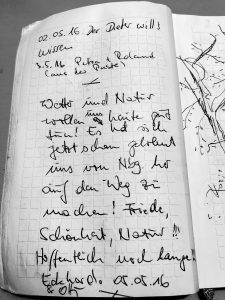 02.05.16 Der Dieter will's
wissen
3.5.16 Petra & Roland
(aus der
Wetter und Natur
wollen uns heute gut
tun! Es hat sich
jetzt schon gelohnt
uns von Weg
auf den Weg zu
machen! Friede,
Schönheit, Natur!!!
Hoffentlich noch lange.
Eckhard 05.05.16